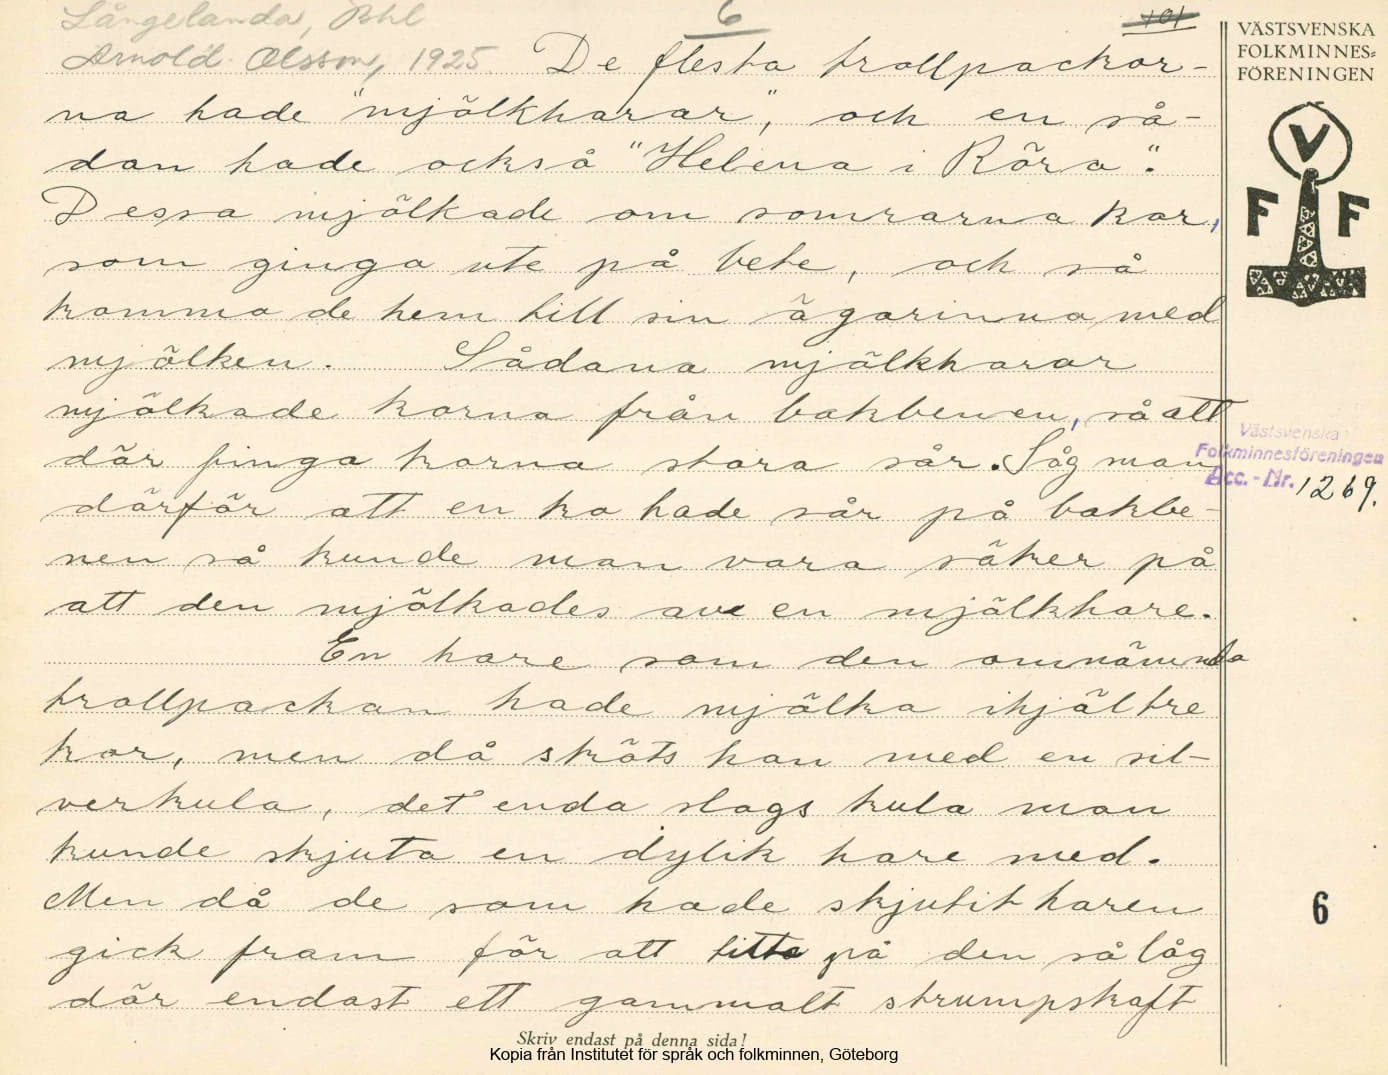 Långelanda, Bhl
6
101
Arnold Olsson, 1925
De flesta trollpackor-
na hade "mjölkharar", och en så-
dan hade också "Helena i Röra".
Dessa mjölkade om somrarna kor,
som ginga ute på bete, och så
komma de hem till sin ägarinna med
mjölken. Sådana mjölkharar
mjölkade korna från bakbenen, så att
där finga korna stora sår. Såg man
därför att en ko hade sår på bakbe-
nen så kunde man vara säker på
att den mjölkades av en mjölkhare.
En hare som den omnämnda
trollpackan hade mjölka ihjäl tre
kor, men då sköts han med en sil-
verkula, det enda slags kula man
kunde skjuta en dylik hare med.
Men då de som hade skjutit haren
gick fram för att titta på den så låg
där endast ett gammalt strumpskaft
Skriv endast på denna sida!
Kopia från Institutet för språk och folkminnen, Göteborg
VÄSTSVENSKA
FOLKMINNES=
FÖRENINGEN
V
F F
Västsvenska
Folkminnesföreningen
Acc. - Nr. 1269.
6